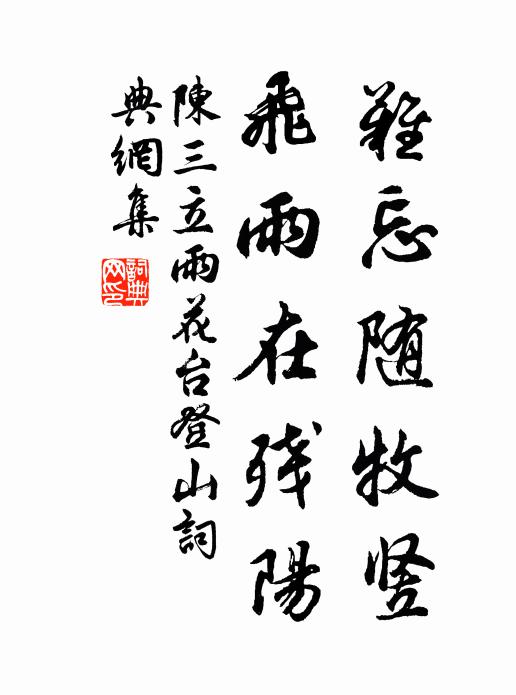 難忘随牧竖
飛雨在残陽
陳三立雨花台登山詞
典網集
詞典网印